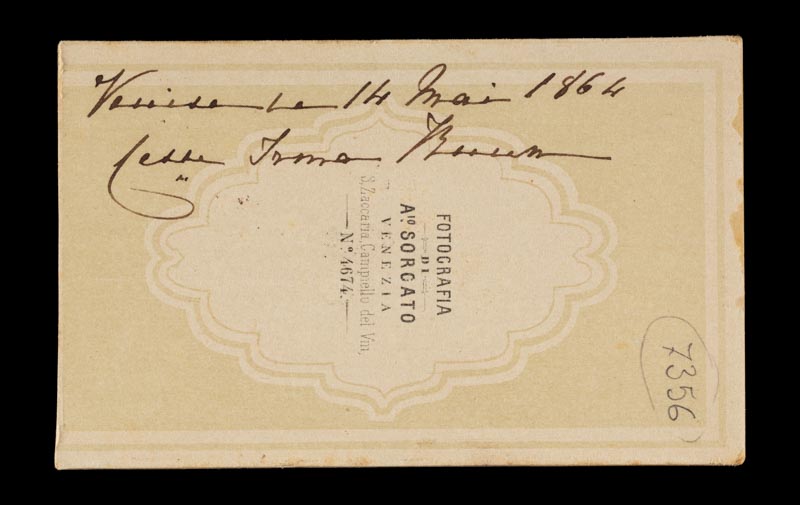 Venise le 14 Mai 1864
Cesse Irma
FOTOGRAFIA
DI
Aio. SORGATO
VENEZIA
S. Zaccaria, Campiello del Vin,
No. 4674.
7356